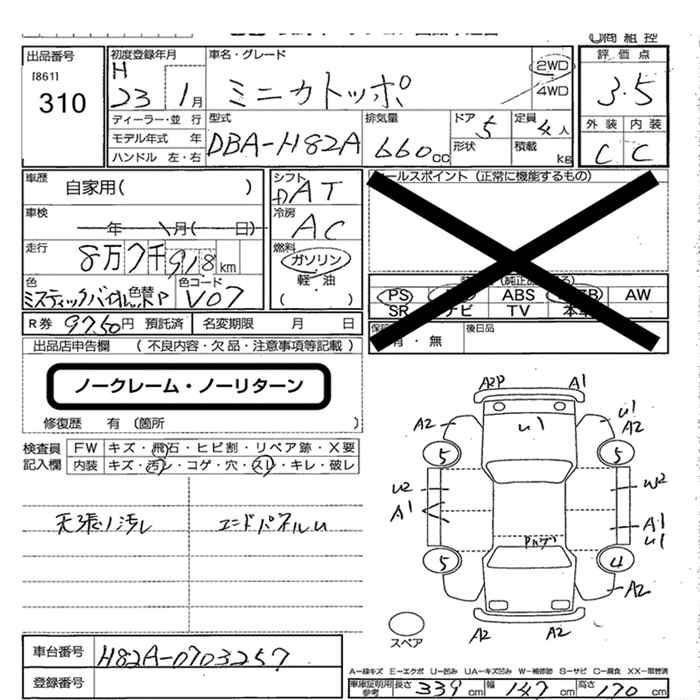 出品番号
[861]
310
初度登録年月
H
23 1月
車名・グレード
ミニカトッポ
2WD
4WD
評価点
3.5
外装 内装
C C
ディーラー・並 行
モデル年式 年
ハンドル 左・右
型式
DBA-H82A
排気量
660cc
ドア 5
形状
定員 4人
積載 kg
車歴
自家用( )
シフト
AT
冷房
AC
車検
年 月( 日)
走行
8万7千918km
燃料
ガソリン
軽・油
( )
色
色替
色コード
V07
セールスポイント (正常に機能するもの)
PS ABS AW
SR ナビ TV
有・無
後日品
R券 9750円 預託済 名変期限 月 日
出品店申告欄 (不良内容・欠品・注意事項等記載)
ノークレーム・ノーリターン
修復歴 有 (箇所 )
検査員
記入欄
FW キズ・飛石・ヒビ割・リペア跡・X要
内装 キズ・汚レ・コゲ・穴・スレ・キレ・破レ
天張り汚レ
エンドパネルU
A2P A1
A2 U1 U1 A2
5 5
U2 W2
A1 A1
U1
5 4
A2
A2 A2
スペア
車台番号 H82A-0703257
登録番号
A-線キズ E-エクボ U-凹み UA-キズ凹み W-補修跡 S-サビ C-腐食 XX-取替済
車庫証明用
参考
長さ 339cm 幅 147cm 高さ 170cm